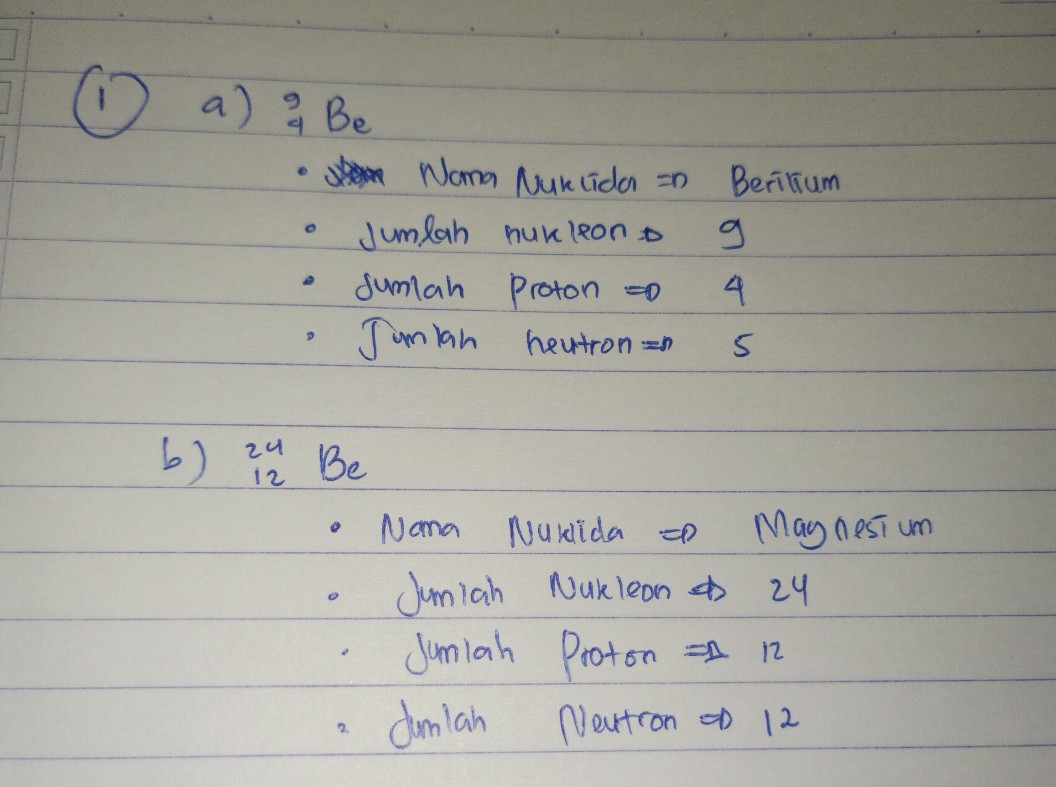 1 a) 9 4 Be
• Nama Nuklida => Berilium
• Jumlah nukleon => 9
• Jumlah Proton => 4
• Jumlah neutron => 5
b) 24 12 Be
• Nama Nuklida => Magnesium
• Jumlah Nukleon => 24
• Jumlah Proton => 12
• Jumlah Neutron => 12